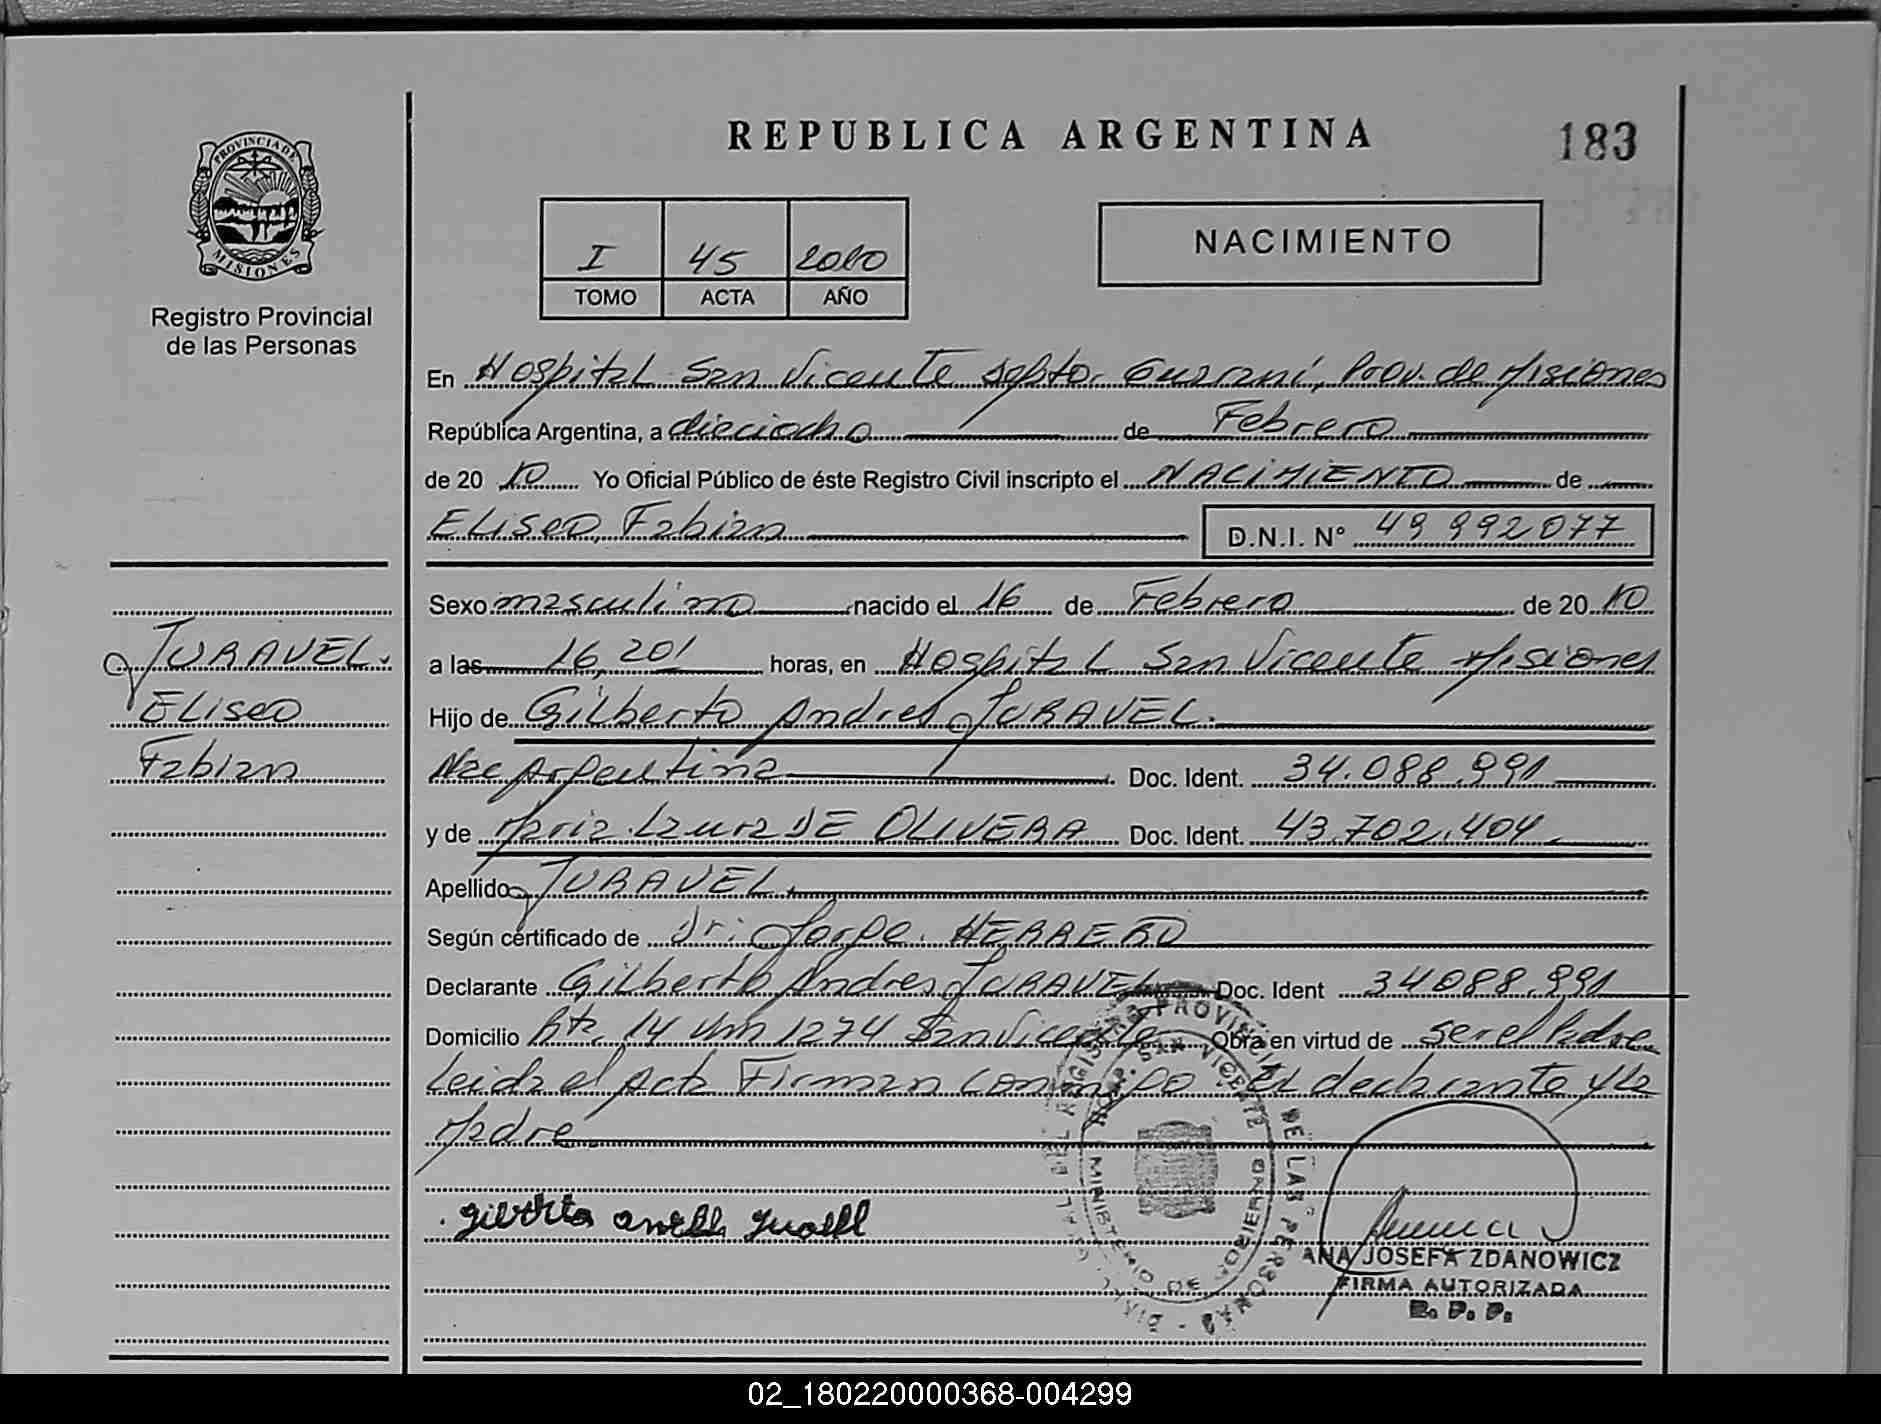 REPUBLICA ARGENTINA
183
PROVINCIA DE
MISIONES
Registro Provincial
de las Personas
I 45 2010
TOMO ACTA AÑO
NACIMIENTO
En Hospital San Vicente Dpto. Guaraní, Prov. de Misiones
República Argentina, a dieciocho de Febrero
de 20 10 Yo Oficial Público de éste Registro Civil inscripto el NACIMIENTO de
ELISEO, Fabian D.N.I. N° 49 992 077
Sexo masculino nacido el 16 de Febrero de 20 10
a las 16,20' horas, en Hospital San Vicente Misiones
Hijo de Gilberto Andres JURAVEL.
Nac Argentina Doc. Ident. 34.088.991
y de Maria Laura DE OLIVERA Doc. Ident. 43.702.404
Apellido JURAVEL.
Según certificado de Dr: Jorge HERRERO
Declarante Gilberto Andres JURAVEL Doc. Ident 34088.991
Domicilio Rta. 14 Km 1274 San Vicente Obra en virtud de ser el Padre
Leida el Acta Firman conmigo el declarante y la
Madre
JURAVEL.
ELISEO
Fabian
REGISTRO PROVINCIAL DE LAS PERSONAS
HOSP. SAN VICENTE
MINISTERIO DE GOBIERNO
ANA JOSEFA ZDANOWICZ
FIRMA AUTORIZADA
R. P. P.
02_180220000368-004299